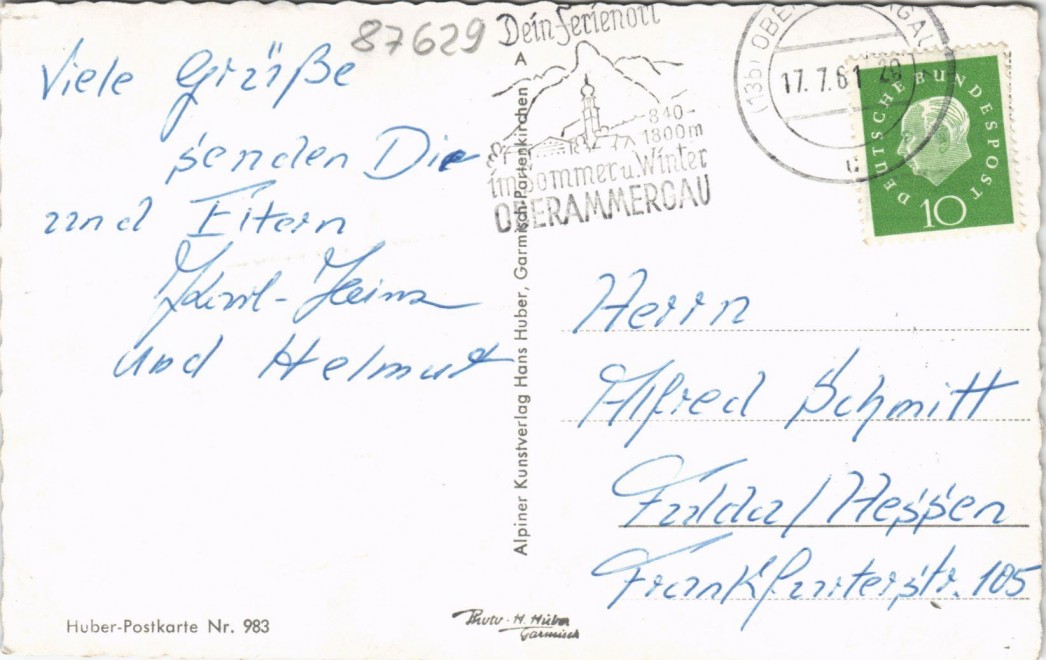 87629
Viele Grüße
senden Die
und Eltern
Karl-Heinz
und Helmut
Dein Ferienort
840-
1800m
im Sommer u. Winter
OBERAMMERGAU
(13b) OBERAMMERGAU
17.7.61-20
c
DEUTSCHE BUNDESPOST
10
Alpiner Kunstverlag Hans Huber, Garmisch-Partenkirchen A
Herrn
Alfred Schmitt
Fulda/Hessen
Frankfurterstr. 105
Huber-Postkarte Nr. 983
Photo-H. Huber
Garmisch